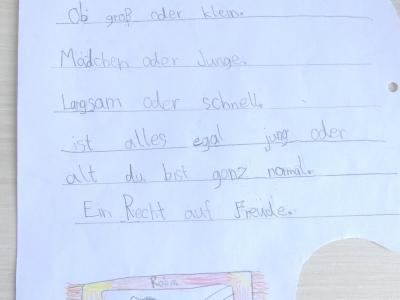 Ob groß oder klein.
Mädchen oder Junge.
Langsam oder schnell.
ist alles egal jung oder
alt du bist ganz normal.
Ein Recht auf Freude.